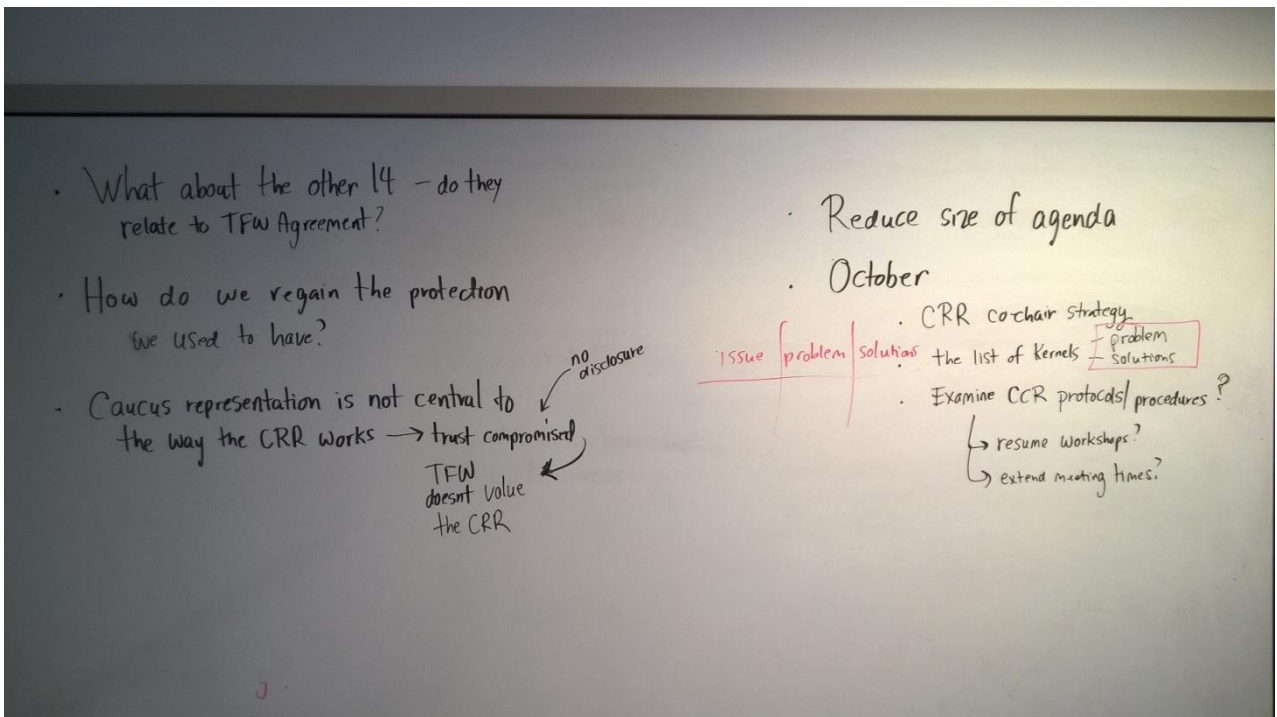 · What about the other 14 – do they
relate to TFW Agreement?
· How do we regain the protection
we used to have?
· Caucus representation is not central to
the way the CRR works → trust compromised
no
disclosure
TFW
doesnt value
the CRR
· Reduce size of agenda
· October
· CRR co-chair strategy
· the list of Kernels – problem
– solutions
issue | problem | solutions
· Examine CCR protocols/procedures?
↳ resume workshops?
↳ extend meeting times?